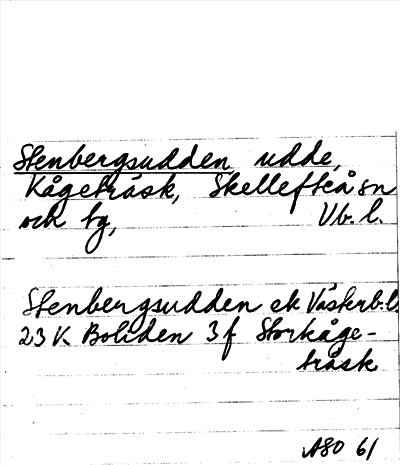 Stenbergsudden, udde,
Kågeträsk, Skellefteå sn
och tg, Vb. l.
Stenbergsudden ek Västerb.l.
23 K Boliden 3 f Storkåge-
träsk
ASO 61